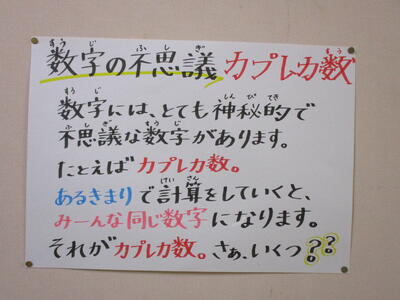 数字の不思議 カプレカ数
数字には、とても神秘的で
不思議な数字があります。
たとえばカプレカ数。
あるきまりで計算をしていくと、
みーんな同じ数字になります。
それがカプレカ数。さぁ、いくつ??